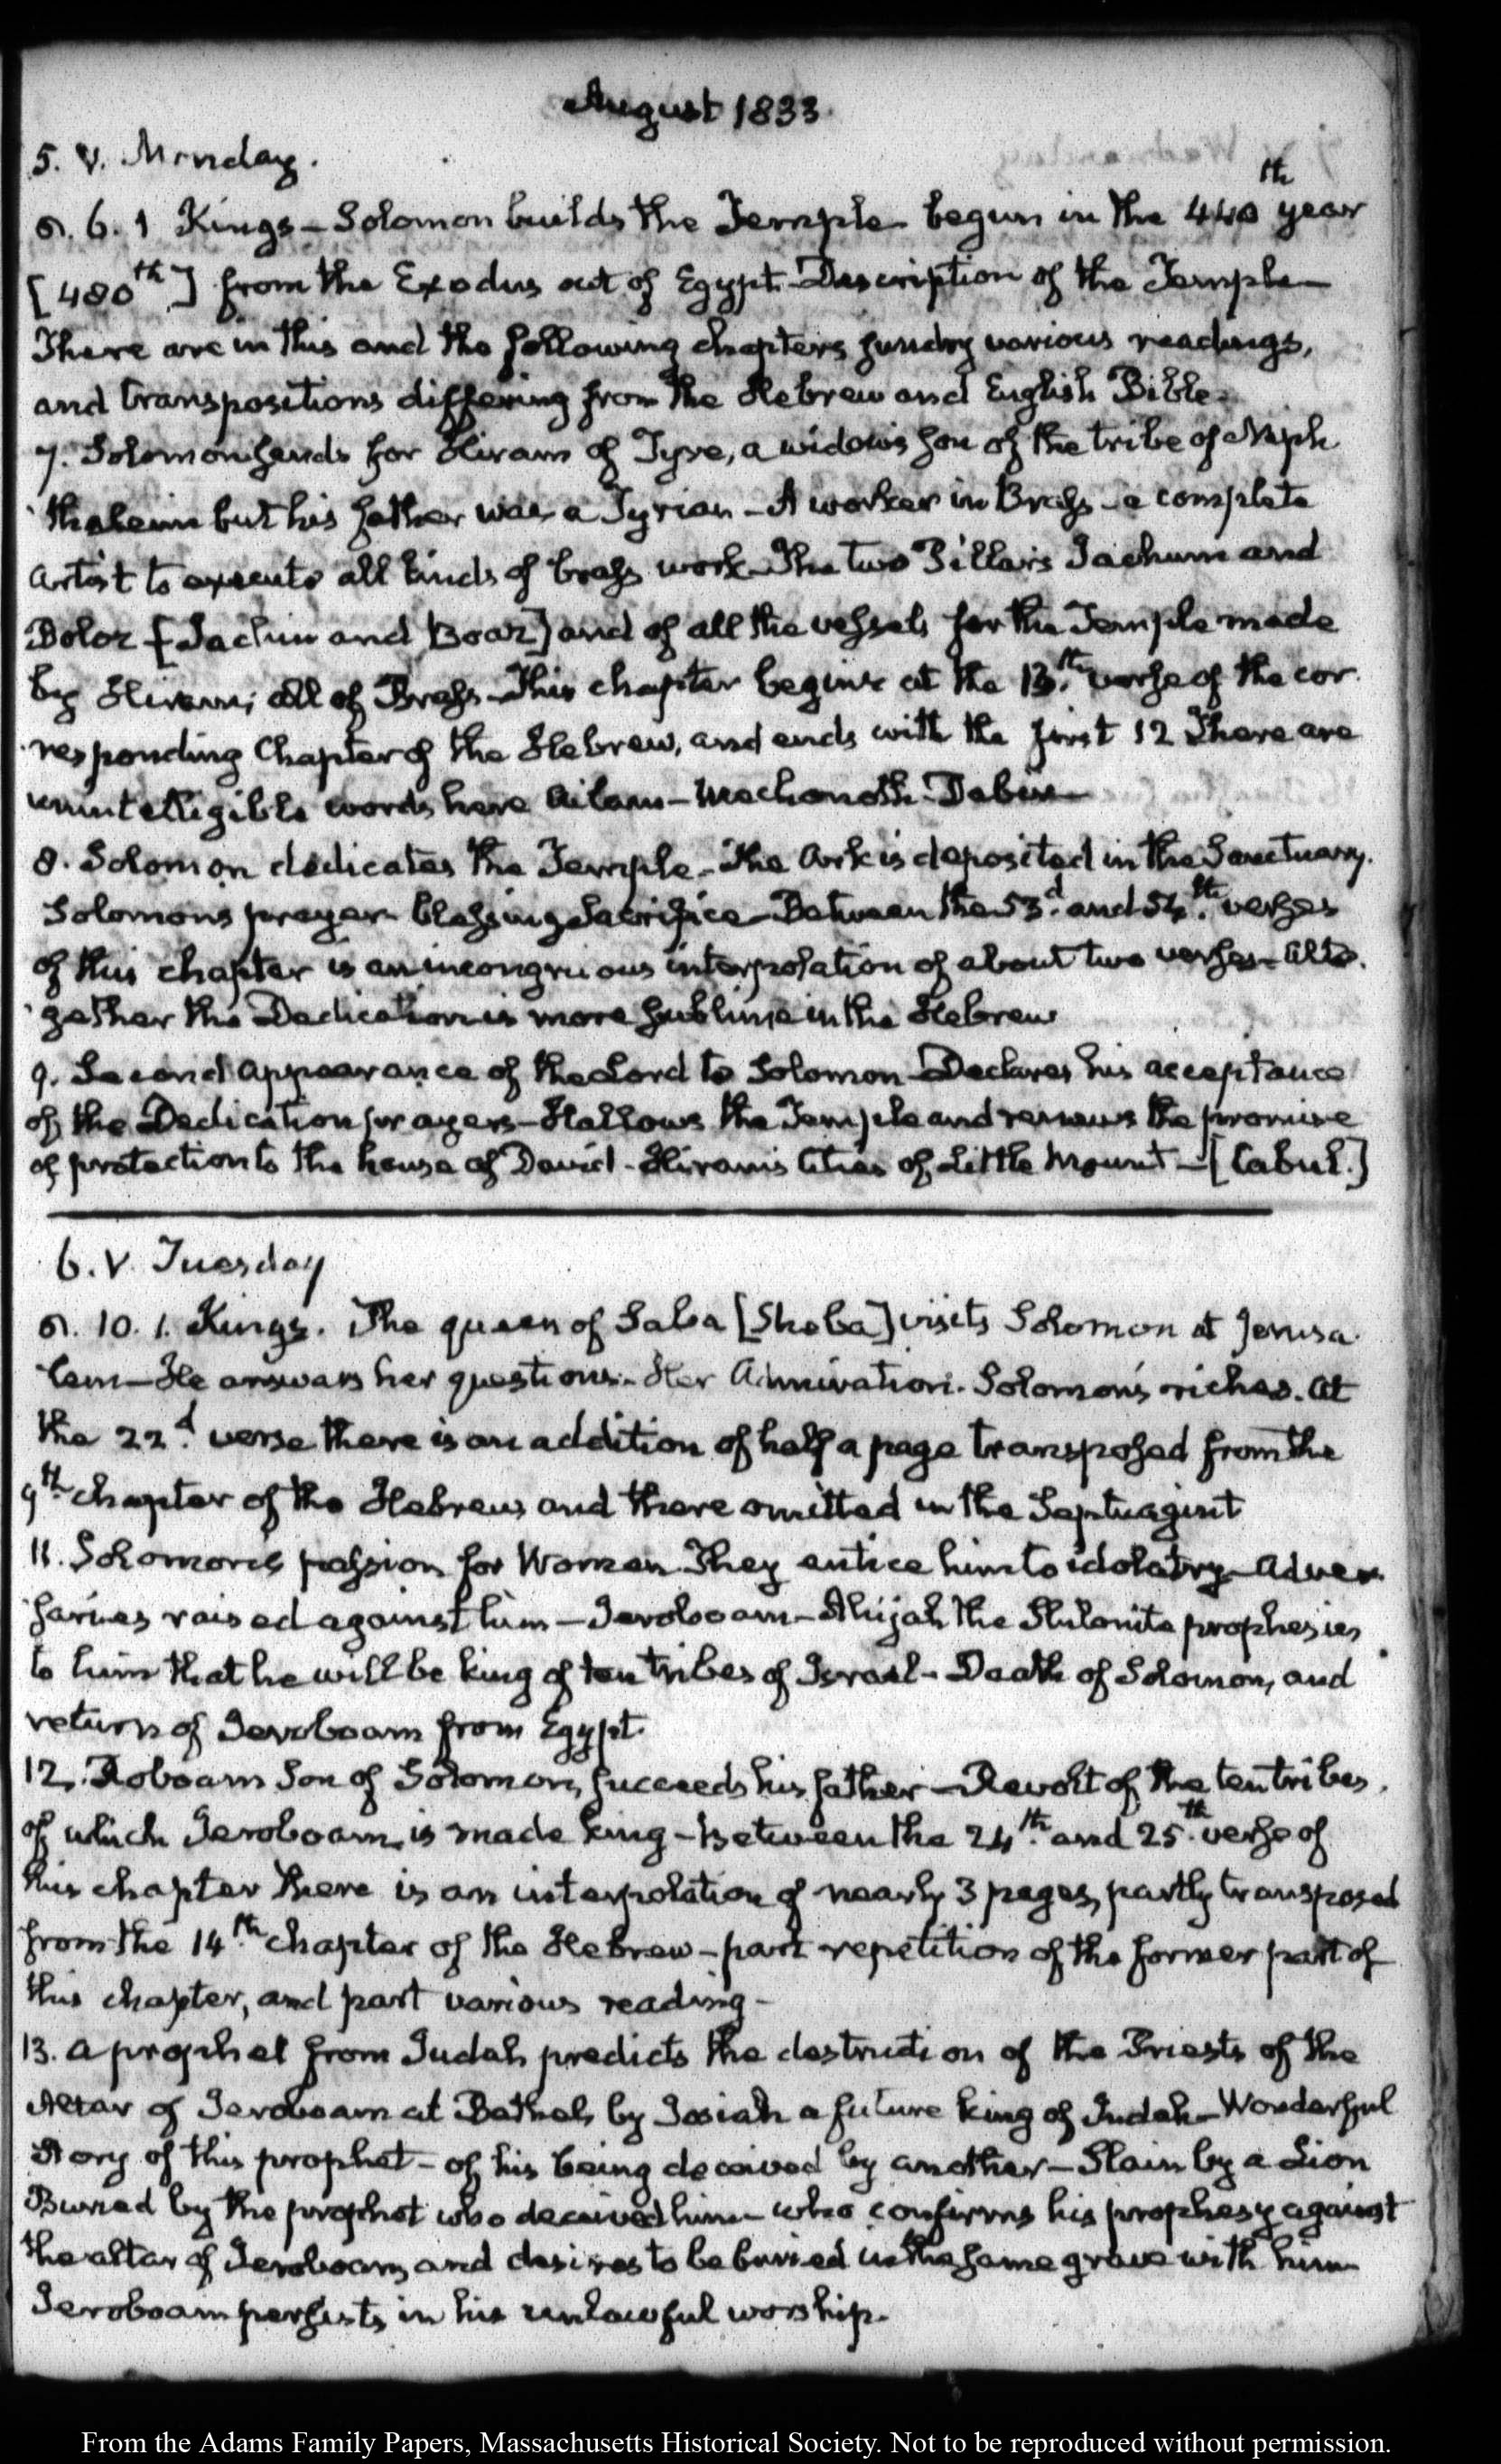 August 1833.
5. V. Monday.
6. 1 Kings – Solomon builds the Temple – begun in the 440th year
[480th] from the Exodus out of Egypt – Description of the Temple –
There are in this and the following chapters sundry various readings,
and transpositions differing from the Hebrew and English Bible –
7. Solomon sends for Hiram of Tyre, a widow's son of the tribe of Neph
thaleim but his father was a Tyrian – A worker in Brass – a complete
artist to execute all kinds of brass work – The two Pillars Jachum and
Boloz [Jachin and Boaz] and of all the vessels for the Temple made
by Hiram; all of Brass – This chapter begins at the 13th verse of the cor
responding Chapter of the Hebrew, and ends with the first 12 There are
unintelligible words here Ailam – Mechonoth – Dabir –
8. Solomon dedicates the Temple – The Ark is deposited in the Sanctuary.
Solomon's prayer – blessing – Sacrifice – Between the 53d. and 54th. verses
of this chapter is an incongruous interpolation of about two verses – Alto
gether the Dedication is more sublime in the Hebrew
9. Second appearance of the Lord to Solomon – Declares his acceptance
of the Dedication prayers – Hallows the Temple and renews the promise
of protection to the house of David – Hiram's Cities of Little Mount – [Cabul.]
6. V. Tuesday
10. 1. Kings. The queen of Saba [Sheba] visits Solomon at Jerusa
lem – He answers her questions – Her Admiration. Solomon's riches. At
the 22d. verse there is an addition of half a page transposed from the
9th chapter of the Hebrew and there omitted in the Septuagint
11. Solomon's passion for Women They entice him to idolatry – Adver
saries raised against him – Jeroboam – Ahijah the Shilonite prophesies
to him that he will be king of ten tribes of Israel – Death of Solomon, and
return of Jeroboam from Egypt.
12. Roboam Son of Solomon, succeeds his father – Revolt of the ten tribes,
of which Jeroboam is made king – Between the 24th. and 25th. verse of
this chapter there is an interpolation of nearly 3 pages, partly transposed
from the 14th. chapter of the Hebrew – part repetition of the former part of
this chapter, and part various reading –
13. A prophet from Judah predicts the destruction of the Priests of the
Altar of Jeroboam at Bethel, by Josiah a future king of Judah – Wonderful
Story of this prophet – of his being deceived by another – Slain by a Lion
Buried by the prophet who deceived him – who confirms his prophesy against
the altar of Jeroboam, and desires to be buried in the same grave with him
Jeroboam persists in his unlawful worship.
From the Adams Family Papers, Massachusetts Historical Society. Not to be reproduced without permission.